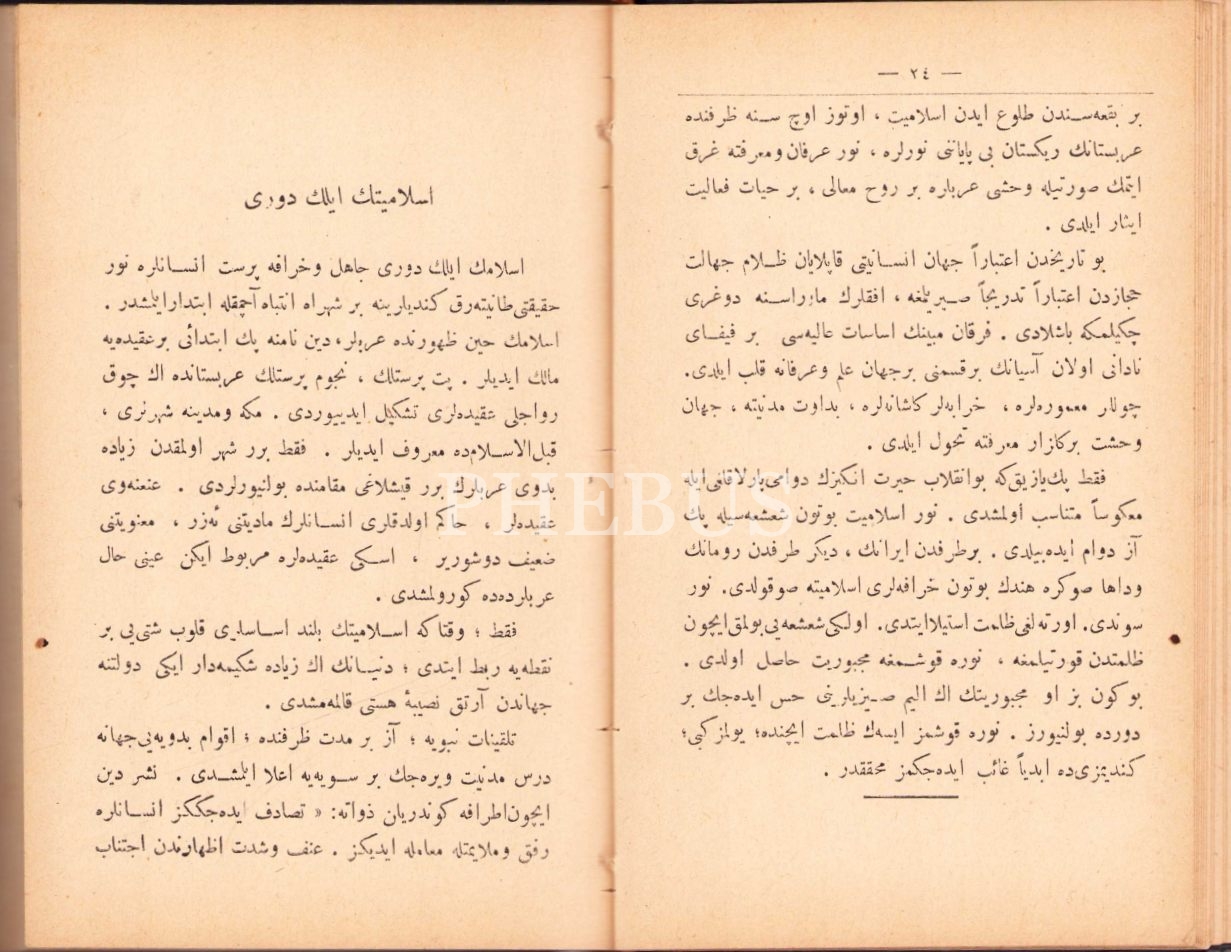 — ٢٤ —
بر بقعه‌سندن طلوع ایدن اسلامیت ، اوتوز اوچ سنه ظرفنده
عربستانك ریكستان بی پایاننی نورلره ، نور عرفان ومعرفته غرق
ایتمك صورتیله وحشی عربلره بر روح معالی ، بر حیات فعالیت
ایثار ایلدی .
بو تاریخدن اعتباراً جهان انسانیتی قاپلایان ظلام جهالت
حجازدن اعتباراً تدریجاً صیریلمغه ، افقلرك ماوراسنه دوغری
چكیلمكه باشلادی . فرقان مبینك اساسات عالیه‌سی بر فیفای
نادانی اولان آسیانك برقسمنی برجهان علم وعرفانه قلب ایلدی.
چوللر معموره‌لره ، خرابه‌لر كاشانه‌لره ، بداوت مدنیته ، جهان
وحشت بركلزار معرفته تحول ایلدی .
فقط پك‌یازیق‌كه بوانقلاب حیرت انكیزك دوامی پارلاقلغی‌ایله
معكوساً متناسب اولمشدی . نور اسلامیت بوتون شعشعه‌سیله پك
آز دوام ایده‌بیلدی . برطرفدن ایرانك ، دیكر طرفدن رومانك
وداها صوكره هندك بوتون خرافه‌لری اسلامیته صوقولدی . نور
سوندی. اورته‌لغی ظلمت استیلاایتدی. اولكی شعشعه‌یی بولمق‌ایچون
ظلمتدن قورتیلمغه ، نوره قوشمغه مجبوریت حاصل اولدی .
بوكون بز او مجبوریتك اك الیم صیزیلرینی حس ایده‌جك بر
دورده بولنیورز . نوره قوشمز ایسه‌ك ظلمت ایچنده؛ یولمز كبی؛
كندیمزی‌ده ابدیاً غائب ایده‌جكمز محققدر .
اسلامیتك ایلك دوری
اسلامك ایلك دوری جاهل وخرافه پرست انسانلره نور
حقیقتی طانیته‌رق كندیلرینه بر شهراه انتباه آچمقله ابتدارایلمشدر .
اسلامك حین ظهورنده عربلر، دین نامنه پك ابتدائی برعقیده‌یه
مالك ایدیلر . پت پرستلك ، نجوم پرستلك عربستانده اك چوق
رواجلی عقیده‌لری تشكیل ایدییوردی . مكه ومدینه شهرلری ،
قبل‌الاسلام‌ده معروف ایدیلر . فقط برر شهر اولمقدن زیاده
بدوی عربلرك برر قیشلاغی مقامنده بولنیورلردی . عنعنه‌وی
عقیده‌لر ، حاكم اولدقلری انسانلرك مادیتنی ئه‌زر ، معنویتنی
ضعیف دوشوریر ، اسكی عقیده‌لره مربوط ایكن عینی حال
عربلرده‌ده كورولمشدی .
فقط ؛ وقتاكه اسلامیتك بلند اساسلری قلوب شتی‌یی بر
نقطه‌یه ربط ایتدی ؛ دنیانك اك زیاده شكیمه‌دار ایكی دولتنه
جهاندن آرتق نصیبهٔ هستی قالمه‌مشدی .
تلقینات نبویه ؛ آز بر مدت ظرفنده ؛ اقوام بدویه‌یی‌جهانه
درس مدنیت ویره‌جك بر سویه‌یه اعلا ایلمشدی . نشر دین
ایچون‌اطرافه كوندریلن ذواته: « تصادف ایده‌جككز انسانلره
رفق وملایمتله معامله ایدیكز . عنف وشدت اظهارندن اجتناب
PHEBUS